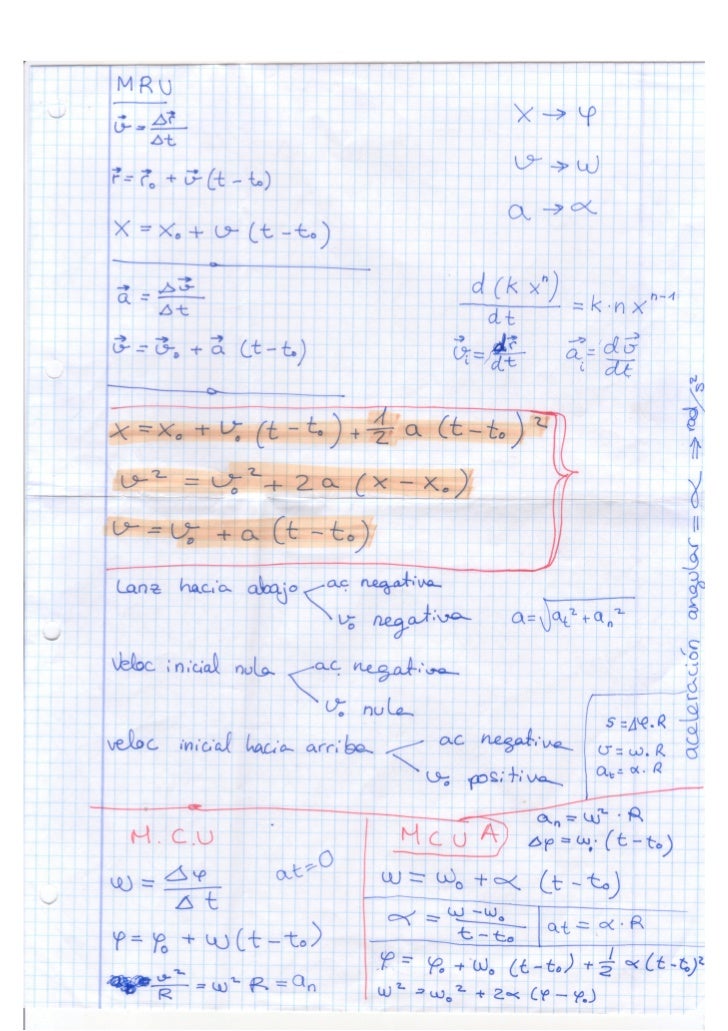 MRU
v⃗ = Δr⃗/Δt
r⃗ = r⃗₀ + v⃗ (t - t₀)
x = x₀ + v (t - t₀)
x → φ
v → ω
a → α
a⃗ = Δv⃗/Δt
v⃗ = v⃗₀ + a⃗ (t - t₀)
d (k xⁿ)/dt = k·n xⁿ⁻¹
v⃗ᵢ = dr⃗/dt a⃗ᵢ = dv⃗/dt
x = x₀ + v₀ (t - t₀) + 1/2 a (t - t₀)²
v² = v₀² + 2a (x - x₀)
v = v₀ + a (t - t₀)
aceleración angular = α ⇒ rad/s²
Lanz hacia abajo ac negativa
v₀ negativa
a = √(aₜ² + aₙ²)
Veloc inicial nula ac negativa
v₀ nula
veloc inicial hacia arriba ac negativa
v₀ positiva
s = Δφ.R
v = ω.R
aₜ = α.R
M.C.U
at=0
ω = Δφ/Δt
φ = φ₀ + ω(t - t₀)
v²/R = ω² R = aₙ
MCUA
aₙ = ω² · R
Δφ = ω·(t - t₀)
ω = ω₀ + α (t - t₀)
α = (ω - ω₀)/(t - t₀)
at = α·R
φ = φ₀ + ω₀ (t - t₀) + 1/2 α (t - t₀)²
ω² = ω₀² + 2α (φ - φ₀)